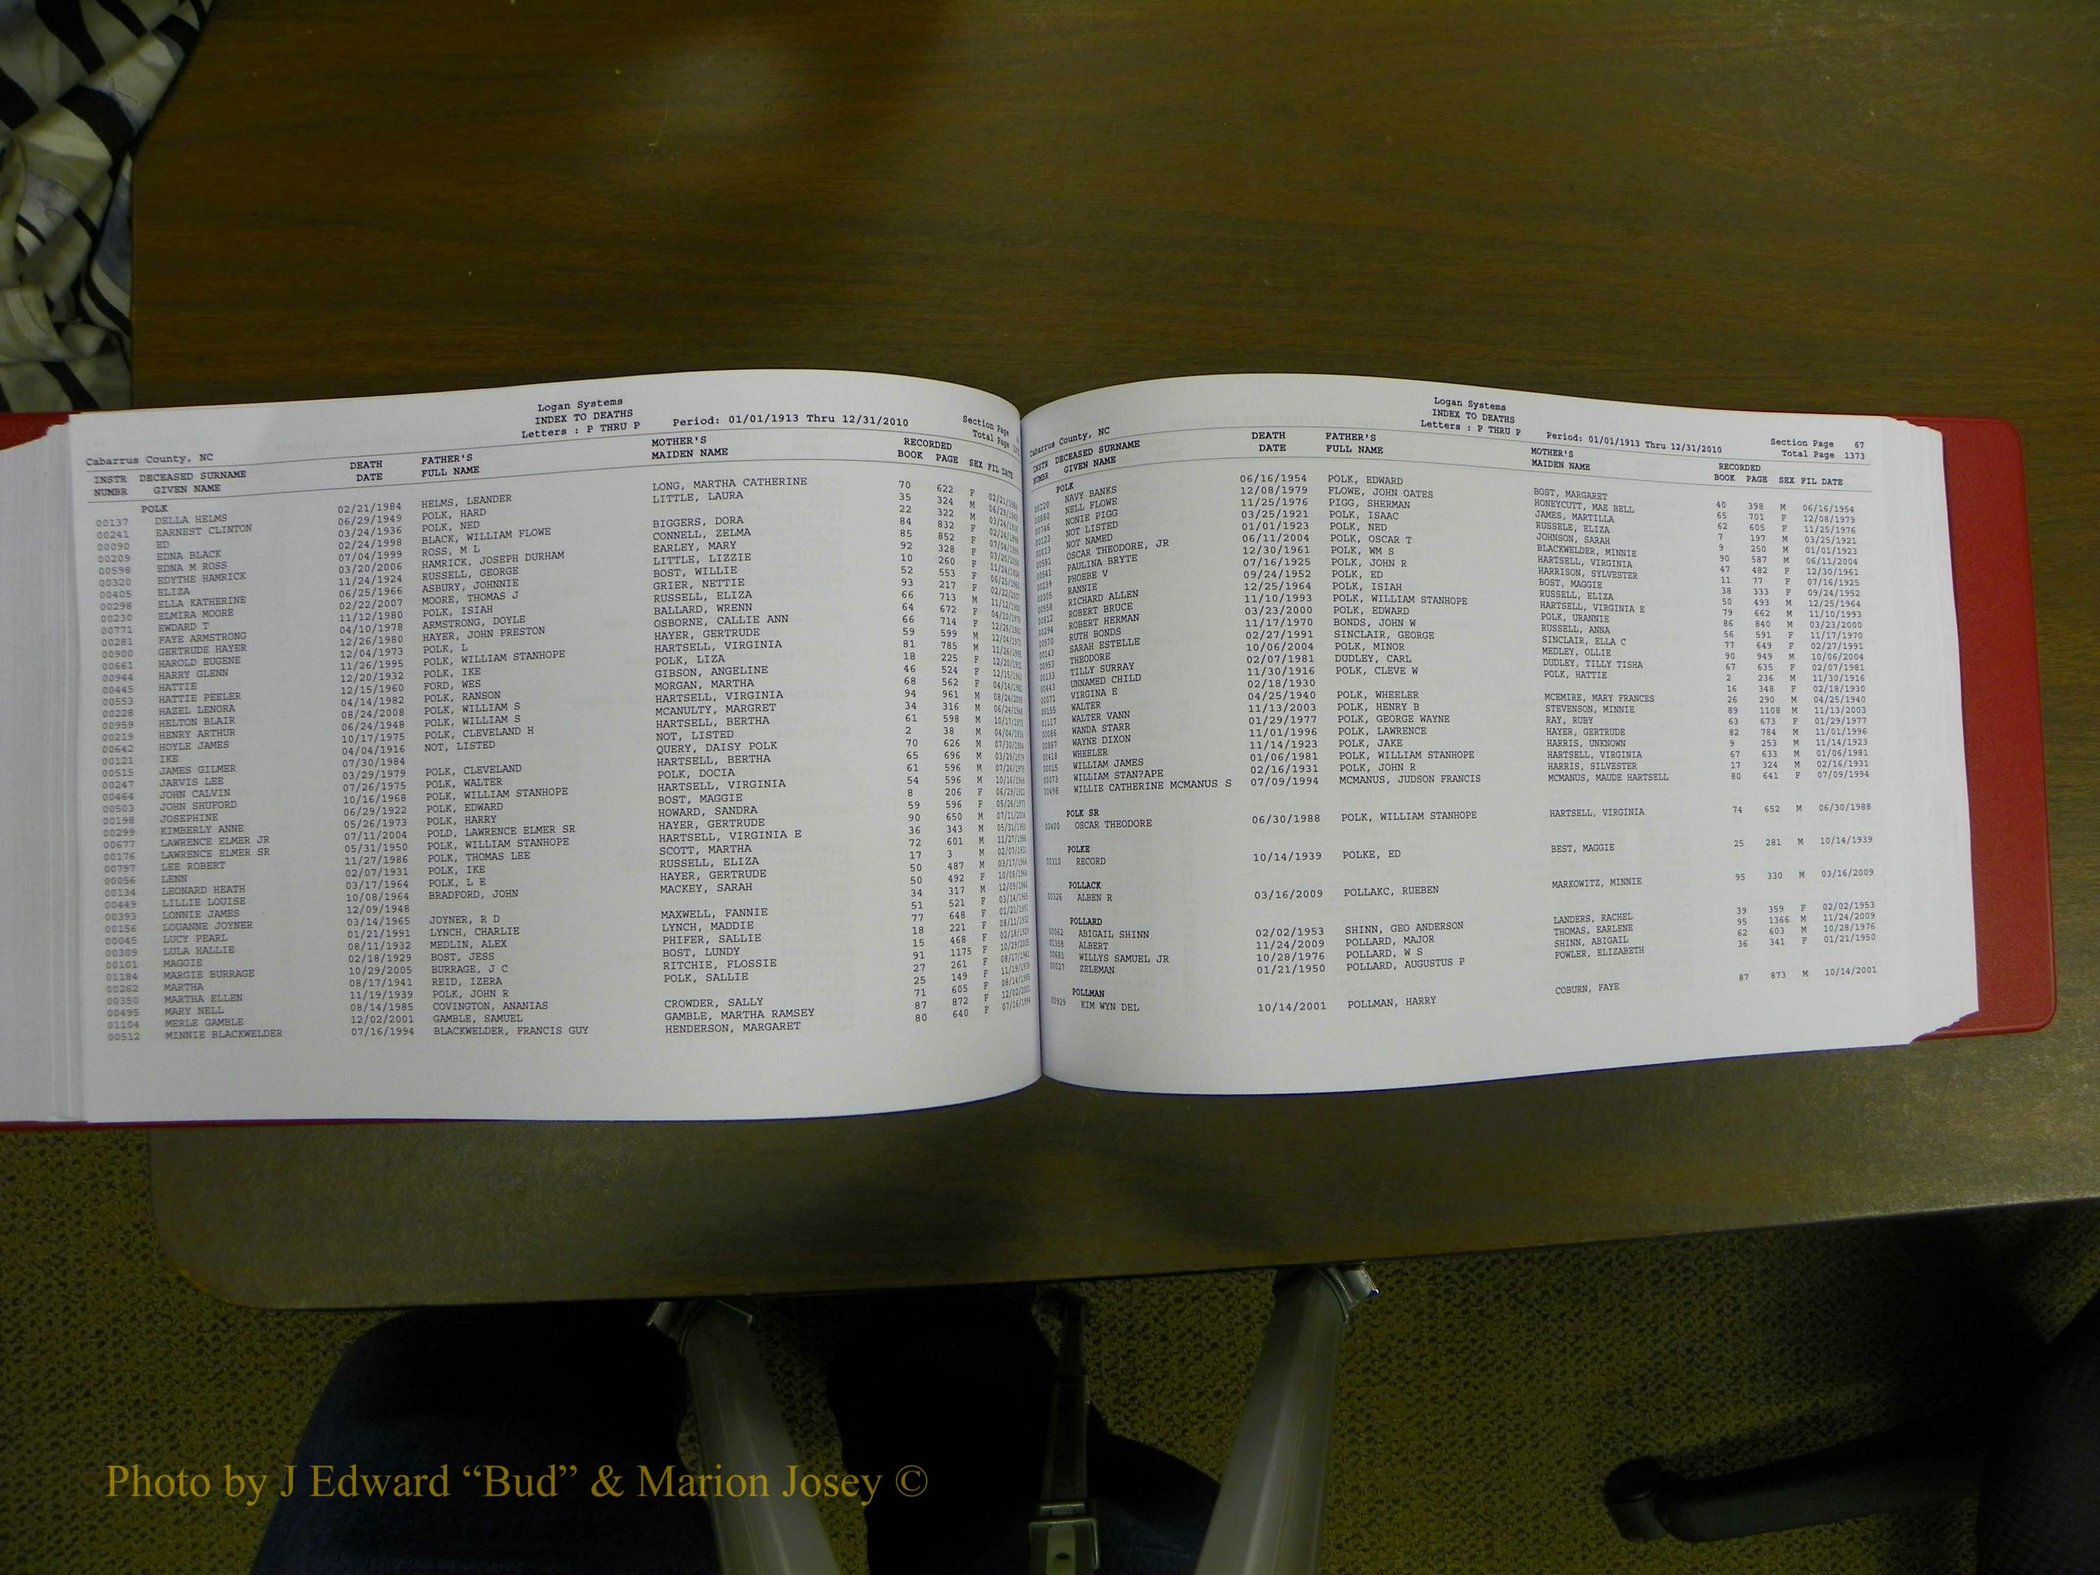 Logan Systems
INDEX TO DEATHS
Letters : P THRU P Period: 01/01/1913 Thru 12/31/2010
Section Page
Total Page
Cabarrus County, NC
INSTR DECEASED SURNAME DEATH FATHER'S MOTHER'S RECORDED
NUMBR GIVEN NAME DATE FULL NAME MAIDEN NAME BOOK PAGE SEX FIL DATE
POLK
00137 DELLA HELMS 02/21/1984 HELMS, LEANDER LONG, MARTHA CATHERINE 70 622 F 02/21/1984
00241 EARNEST CLINTON 06/29/1949 POLK, HARD LITTLE, LAURA 35 324 M 06/29/1949
00090 ED 03/24/1936 POLK, NED 22 322 M 03/24/1936
00209 EDNA BLACK 02/24/1998 BLACK, WILLIAM FLOWE BIGGERS, DORA 84 832 F 02/24/1998
00598 EDNA M ROSS 07/04/1999 ROSS, M L CONNELL, ZELMA 85 852 F 07/04/1999
00320 EDYTHE HAMRICK 03/20/2006 HAMRICK, JOSEPH DURHAM EARLEY, MARY 92 328 F 03/20/2006
00405 ELIZA 11/24/1924 RUSSELL, GEORGE LITTLE, LIZZIE 10 260 F 11/24/1924
00298 ELLA KATHERINE 06/25/1966 ASBURY, JOHNNIE BOST, WILLIE 52 553 F 06/25/1966
00230 ELMIRA MOORE 02/22/2007 MOORE, THOMAS J GRIER, NETTIE 93 217 F 02/22/2007
00771 EWDARD T 11/12/1980 POLK, ISIAH RUSSELL, ELIZA 66 713 M 11/12/1980
00281 FAYE ARMSTRONG 04/10/1978 ARMSTRONG, DOYLE BALLARD, WRENN 64 672 F 04/10/1978
00900 GERTRUDE HAYER 12/26/1980 HAYER, JOHN PRESTON OSBORNE, CALLIE ANN 66 714 F 12/26/1980
00661 HAROLD EUGENE 12/04/1973 POLK, L HAYER, GERTRUDE 59 599 M 12/04/1973
00944 HARRY GLENN 11/26/1995 POLK, WILLIAM STANHOPE HARTSELL, VIRGINIA 81 785 M 11/26/1995
00445 HATTIE 12/20/1932 POLK, IKE POLK, LIZA 18 225 F 12/20/1932
00553 HATTIE PEELER 12/15/1960 FORD, WES GIBSON, ANGELINE 46 524 F 12/15/1960
00228 HAZEL LENORA 04/14/1982 POLK, RANSON MORGAN, MARTHA 68 562 F 04/14/1982
00959 HELTON BLAIR 08/24/2008 POLK, WILLIAM S HARTSELL, VIRGINIA 94 961 M 08/24/2008
00219 HENRY ARTHUR 06/24/1948 POLK, WILLIAM S MCANULTY, MARGRET 34 316 M 06/24/1948
00642 HOYLE JAMES 10/17/1975 POLK, CLEVELAND H HARTSELL, BERTHA 61 598 M 10/17/1975
00121 IKE 04/04/1916 NOT, LISTED NOT, LISTED 2 38 M 04/04/1916
00515 JAMES GILMER 07/30/1984 QUERY, DAISY POLK 70 626 M 07/30/1984
00247 JARVIS LEE 03/29/1979 POLK, CLEVELAND HARTSELL, BERTHA 65 696 M 03/29/1979
00464 JOHN CALVIN 07/26/1975 POLK, WALTER POLK, DOCIA 61 596 M 07/26/1975
00503 JOHN SHUFORD 10/16/1968 POLK, WILLIAM STANHOPE HARTSELL, VIRGINIA 54 596 M 10/16/1968
00198 JOSEPHINE 06/29/1922 POLK, EDWARD BOST, MAGGIE 8 206 F 06/29/1922
00299 KIMBERLY ANNE 05/26/1973 POLK, HARRY HOWARD, SANDRA 59 596 F 05/26/1973
00677 LAWRENCE ELMER JR 07/11/2004 POLD, LAWRENCE ELMER SR HAYER, GERTRUDE 90 650 M 07/11/2004
00176 LAWRENCE ELMER SR 05/31/1950 POLK, WILLIAM STANHOPE HARTSELL, VIRGINIA E 36 343 M 05/31/1950
00797 LEE ROBERT 11/27/1986 POLK, THOMAS LEE SCOTT, MARTHA 72 601 M 11/27/1986
00056 LENN 02/07/1931 POLK, IKE RUSSELL, ELIZA 17 3 M 02/07/1931
00134 LEONARD HEATH 03/17/1964 POLK, L E HAYER, GERTRUDE 50 487 M 03/17/1964
00449 LILLIE LOUISE 10/08/1964 BRADFORD, JOHN MACKEY, SARAH 50 492 F 10/08/1964
00393 LONNIE JAMES 12/09/1948 34 317 M 12/09/1948
00156 LOUANNE JOYNER 03/14/1965 JOYNER, R D MAXWELL, FANNIE 51 521 F 03/14/1965
00045 LUCY PEARL 01/21/1991 LYNCH, CHARLIE LYNCH, MADDIE 77 648 F 01/21/1991
00309 LULA HALLIE 08/11/1932 MEDLIN, ALEX PHIFER, SALLIE 18 221 F 08/11/1932
00101 MAGGIE 02/18/1929 BOST, JESS BOST, LUNDY 15 468 F 02/18/1929
01184 MARGIE BURRAGE 10/29/2005 BURRAGE, J C RITCHIE, FLOSSIE 91 1175 F 10/29/2005
00262 MARTHA 08/17/1941 REID, IZERA POLK, SALLIE 27 261 F 08/17/1941
00350 MARTHA ELLEN 11/19/1939 POLK, JOHN R 25 149 F 11/19/1939
00495 MARY NELL 08/14/1985 COVINGTON, ANANIAS CROWDER, SALLY 71 605 F 08/14/1985
01104 MERLE GAMBLE 12/02/2001 GAMBLE, SAMUEL GAMBLE, MARTHA RAMSEY 87 872 F 12/02/2001
00512 MINNIE BLACKWELDER 07/16/1994 BLACKWELDER, FRANCIS GUY HENDERSON, MARGARET 80 640 F 07/16/1994
Logan Systems
INDEX TO DEATHS
Letters : P THRU P Period: 01/01/1913 Thru 12/31/2010
Section Page 67
Total Page 1373
Cabarrus County, NC
INSTR DECEASED SURNAME DEATH FATHER'S MOTHER'S RECORDED
NUMBR GIVEN NAME DATE FULL NAME MAIDEN NAME BOOK PAGE SEX FIL DATE
POLK
00220 NAVY BANKS 06/16/1954 POLK, EDWARD BOST, MARGARET 40 398 M 06/16/1954
00880 NELL FLOWE 12/08/1979 FLOWE, JOHN OATES HONEYCUTT, MAE BELL 65 701 F 12/08/1979
00746 NONIE PIGG 11/25/1976 PIGG, SHERMAN JAMES, MARTILLA 62 605 F 11/25/1976
00123 NOT LISTED 03/25/1921 POLK, ISAAC RUSSELE, ELIZA 7 197 M 03/25/1921
00013 NOT NAMED 01/01/1923 POLK, NED JOHNSON, SARAH 9 250 M 01/01/1923
00581 OSCAR THEODORE, JR 06/11/2004 POLK, OSCAR T BLACKWELDER, MINNIE 90 587 M 06/11/2004
00541 PAULINA BRYTE 12/30/1961 POLK, WM S HARTSELL, VIRGINIA 47 482 F 12/30/1961
00259 PHOEBE V 07/16/1925 POLK, JOHN R HARRISON, SYLVESTER 11 77 F 07/16/1925
00305 RANNIE 09/24/1952 POLK, ED BOST, MAGGIE 38 333 F 09/24/1952
00558 RICHARD ALLEN 12/25/1964 POLK, ISIAH RUSSELL, ELIZA 50 493 M 12/25/1964
00812 ROBERT BRUCE 11/10/1993 POLK, WILLIAM STANHOPE HARTSELL, VIRGINIA E 79 662 M 11/10/1993
00294 ROBERT HERMAN 03/23/2000 POLK, EDWARD POLK, URANNIE 86 840 M 03/23/2000
00570 RUTH BONDS 11/17/1970 BONDS, JOHN W RUSSELL, ANNA 56 591 F 11/17/1970
00143 SARAH ESTELLE 02/27/1991 SINCLAIR, GEORGE SINCLAIR, ELLA C 77 649 F 02/27/1991
00953 THEODORE 10/06/2004 POLK, MINOR MEDLEY, OLLIE 90 949 M 10/06/2004
00133 TILLY SURRAY 02/07/1981 DUDLEY, CARL DUDLEY, TILLY TISHA 67 635 F 02/07/1981
00443 UNNAMED CHILD 11/30/1916 POLK, CLEVE W POLK, HATTIE 2 236 M 11/30/1916
00071 VIRGINA E 02/18/1930 16 348 F 02/18/1930
00155 WALTER 04/25/1940 POLK, WHEELER MCEMIRE, MARY FRANCES 26 290 M 04/25/1940
01117 WALTER VANN 11/13/2003 POLK, HENRY B STEVENSON, MINNIE 89 1108 M 11/13/2003
00086 WANDA STARR 01/29/1977 POLK, GEORGE WAYNE RAY, RUBY 63 673 F 01/29/1977
00887 WAYNE DIXON 11/01/1996 POLK, LAWRENCE HAYER, GERTRUDE 82 784 M 11/01/1996
00418 WHEELER 11/14/1923 POLK, JAKE HARRIS, UNKNOWN 9 253 M 11/14/1923
00015 WILLIAM JAMES 01/06/1981 POLK, WILLIAM STANHOPE HARTSELL, VIRGINIA 67 633 M 01/06/1981
00073 WILLIAM STAN?APE 02/16/1931 POLK, JOHN R HARRIS, SILVESTER 17 324 M 02/16/1931
00498 WILLIE CATHERINE MCMANUS S 07/09/1994 MCMANUS, JUDSON FRANCIS MCMANUS, MAUDE HARTSELL 80 641 F 07/09/1994
POLK SR
00400 OSCAR THEODORE 06/30/1988 POLK, WILLIAM STANHOPE HARTSELL, VIRGINIA 74 652 M 06/30/1988
POLKE
00310 RECORD 10/14/1939 POLKE, ED BEST, MAGGIE 25 281 M 10/14/1939
POLLACK
00326 ALBEN R 03/16/2009 POLLAKC, RUEBEN MARKOWITZ, MINNIE 95 330 M 03/16/2009
POLLARD
00062 ABIGAIL SHINN 02/02/1953 SHINN, GEO ANDERSON LANDERS, RACHEL 39 359 F 02/02/1953
01358 ALBERT 11/24/2009 POLLARD, MAJOR THOMAS, EARLENE 95 1366 M 11/24/2009
00681 WILLYS SAMUEL JR 10/28/1976 POLLARD, W S SHINN, ABIGAIL 62 603 M 10/28/1976
00027 ZELEMAN 01/21/1950 POLLARD, AUGUSTUS P FOWLER, ELIZABETH 36 341 F 01/21/1950
POLLMAN
00929 KIM WYN DEL 10/14/2001 POLLMAN, HARRY COBURN, FAYE 87 873 M 10/14/2001
Photo by J Edward “Bud” & Marion Josey ©